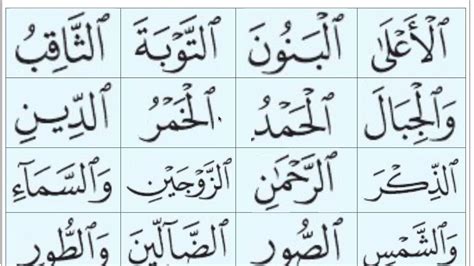 ٱلْأَعْلَى ٱلْبَنُونَ ٱلتَّوْبَةَ ٱلثَّاقِبُ
وَٱلْجِبَالَ ٱلْحَمْدُ ٱلْخَمْرُ ٱلدِّينِ
ٱلذِّكْرَ ٱلرَّحْمَٰنِ ٱلزَّوْجَيْنِ وَٱلسَّمَآءِ
وَٱلشَّمْسِ ٱلصُّورِ ٱلضَّآلِّينَ وَٱلطُّورِ